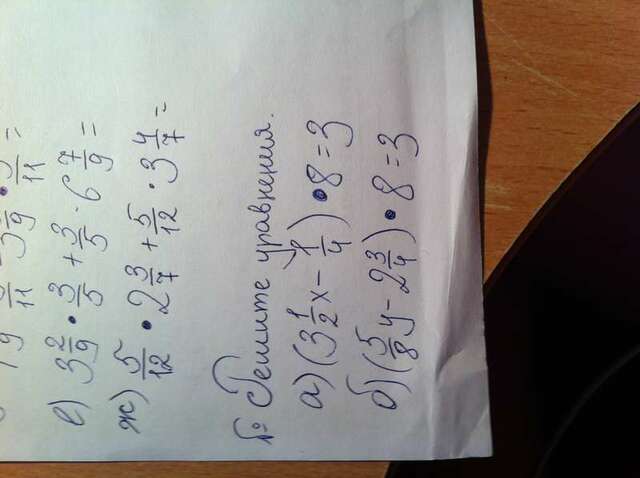 е) 3 2/9 • 3/5 + 3/5 · 6 7/9 =
ж) 5/12 • 2 3/7 + 5/12 · 3 4/7 =
№ Решите уравнения.
а) (3 1/2 x - 1/4) • 8 = 3
б) (5/8 y - 2 3/4) • 8 = 3